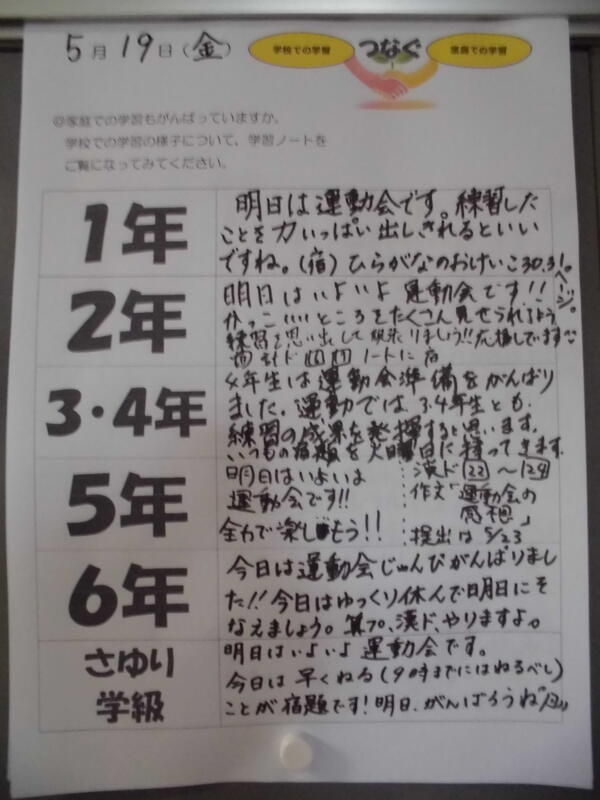 5月19日(金)
学校での学習
つなぐ
家庭での学習
◎家庭での学習もがんばっていますか。
学校での学習の様子について、学習ノートを
ご覧になってみてください。
1年
明日は運動会です。練習した
ことを力いっぱい出しきれるといい
ですね。(宿)ひらがなのおけいこ30.31ページ。
2年
明日はいよいよ運動会です!!
かっこいいところをたくさん見せられるよう
練習を思い出して頑張りましょう!!応援しています
ノートに
3・4年
4年生は運動会準備をがんばり
ました。運動では3.4年生とも、
練習の成果を発揮すると思います。
いつもの宿題を火曜日に持ってきます。
5年
明日はいよいよ
運動会です!!
全力で楽しもう!!
漢ド(22)〜(24)
作文「運動会の
感想」
提出は5/23
6年
今日は運動会じゅんびがんばりまし
た!!今日はゆっくり休んで明日にそ
なえましょう。算プ、漢ド、やりますよ。
さゆり
学級
明日はいよいよ運動会です。
今日は早くねる(9時までにはねるべし)
ことが宿題です!明日、がんばろうね